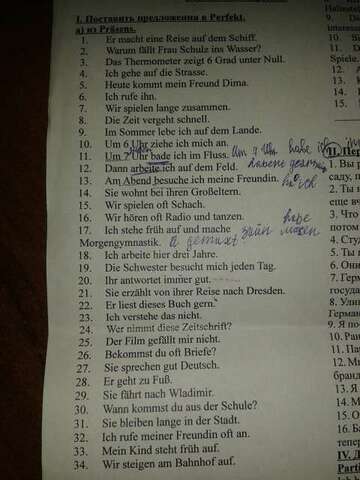 I. Поставить предложения в Perfekt.
а) из Präsens.
1. Er macht eine Reise auf dem Schiff.
2. Warum fällt Frau Schulz ins Wasser?
3. Das Thermometer zeigt 6 Grad unter Null.
4. Ich gehe auf die Strasse.
5. Heute kommt mein Freund Dima.
6. Ich rufe ihn.
7. Wir spielen lange zusammen.
8. Die Zeit vergeht schnell.
9. Im Sommer lebe ich auf dem Lande.
10. Um 6 Uhr ziehe ich mich an.
11. Um 7 Uhr bade ich im Fluss. Um 7 Uhr habe ich
12. Dann arbeite ich auf dem Feld.
13. Am Abend besuche ich meine Freundin. ich
14. Sie wohnt bei ihren Großeltern.
15. Wir spielen oft Schach.
16. Wir hören oft Radio und tanzen. habe
17. Ich stehe früh auf und mache
Morgengymnastik.
18. Ich arbeite hier drei Jahre.
19. Die Schwester besucht mich jeden Tag.
20. Ihr antwortet immer gut.
21. Sie erzählt von ihrer Reise nach Dresden.
22. Er liest dieses Buch gern.
23. Ich verstehe das nicht.
24. Wer nimmt diese Zeitschrift?
25. Der Film gefällt mir nicht.
26. Bekommst du oft Briefe?
27. Sie sprechen gut Deutsch.
28. Er geht zu Fuß.
29. Sie fährt nach Wladimir.
30. Wann kommst du aus der Schule?
31. Sie bleiben lange in der Stadt.
32. Ich rufe meiner Freundin oft an.
33. Mein Kind steht früh auf.
34. Wir steigen am Bahnhof auf.
9.
10.
11.
Spiele.
12.
13.
14.
15.
II. Пер
1. Вы
саду,
2. Ты
еще
3. Что
4. Ты
5. Ты
6. Они
7. Герм
госуда
8. Вы
Германи
9. Я пож
10. Ран
11. Па
12. Ми
бранд
13. М
14. Я
15. М
16. Ба
тепер
IV. Д
Parti